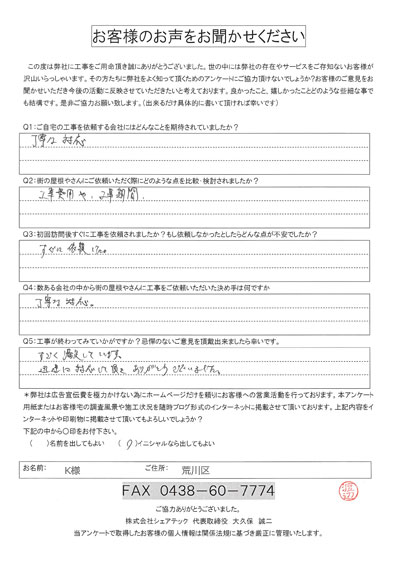 お客様のお声をお聞かせください
この度は弊社に工事をご用命頂き誠にありがとうございました。世の中には弊社の存在やサービスをご存知ないお客様が
沢山いらっしゃいます。その方たちに弊社をよく知って頂くためのアンケートにご協力頂けないでしょうか?お客様のご意見をお
聞かせいただき今後の活動に反映させていただきたいと考えております。良かったこと、嬉しかったことどのような些細な事で
も結構です。是非ご協力お願い致します。(出来るだけ具体的に書いて頂ければ幸いです)
Q1:ご自宅の工事を依頼する会社にはどんなことを期待されていましたか?
丁寧な対応
Q2:街の屋根やさんにご依頼いただく際にどのような点を比較・検討されましたか?
工事費用や、工事期間、
Q3:初回訪問後すぐに工事を依頼されましたか?もし依頼しなかったとしたらどんな点が不安でしたか?
すぐに依頼した。
Q4:数ある会社の中から街の屋根やさんに工事をご依頼いただいた決め手は何ですか
丁寧な対応。
Q5:工事が終わってみていかがですか?忌憚のないご意見を頂戴出来ましたら幸いです。
すごく満足しています。
迅速に対応して頂きありがとうございました。
*弊社は広告宣伝費を極力かけない為にホームページだけを頼りにお客様への営業活動を行っております。本アンケート
用紙またはお客様宅の調査風景や施工状況を随時ブログ形式のインターネットに掲載させて頂いております。上記内容をイ
ンターネットや印刷物に掲載させて頂いてもよろしいでしょうか?
下記の中から○印をお付下さい。
( )名前を出してもよい (○)イニシャルなら出してもよい
お名前: K様 ご住所: 荒川区
FAX 0438-60-7774
ご協力ありがとうございました。
株式会社シェアテック 代表取締役 大久保 誠二
当アンケートで取得したお客様の個人情報は関係法規に基づき厳正に管理いたします。